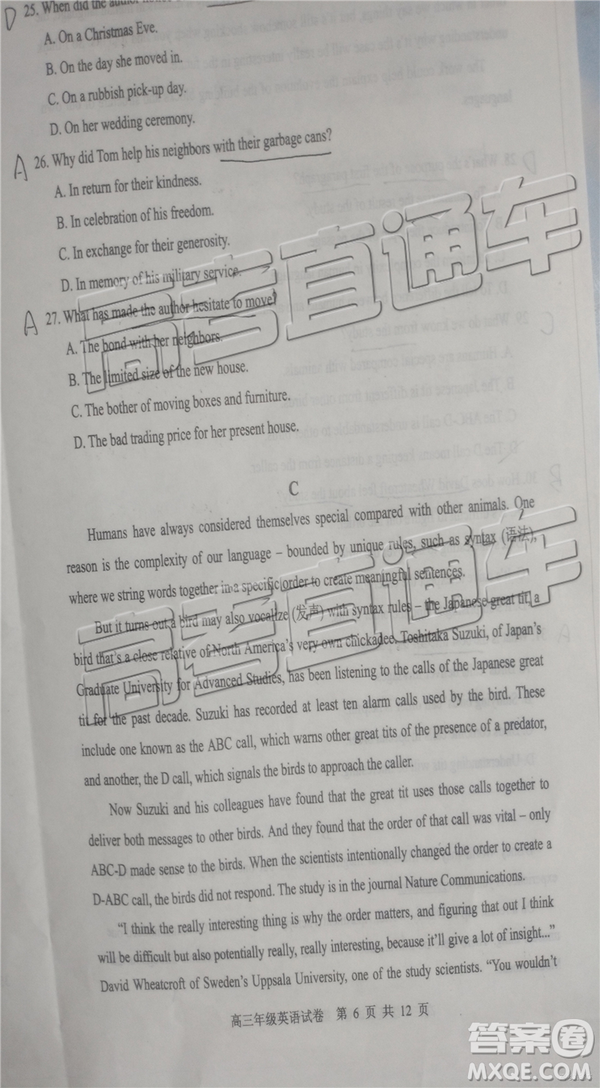 D 25. When did the
A. On a Christmas Eve.
B. On the day she moved in.
C. On a rubbish pick-up day.
D. On her wedding ceremony.
A 26. Why did Tom help his neighbors with their garbage cans?
A. In return for their kindness.
B. In celebration of his freedom.
C. In exchange for their generosity.
D. In memory of his military service.
A 27. What has made the author hesitate to move?
A. The bond with her neighbors.
B. The limited size of the new house.
C. The bother of moving boxes and furniture.
D. The bad trading price for her present house.
C
Humans have always considered themselves special compared with other animals. One
reason is the complexity of our language – bounded by unique rules, such as syntax (语法),
where we string words together in a specific order to create meaningful sentences.
But it turns out a bird may also vocalize (发声) with syntax rules – the Japanese great tit, a
bird that's a close relative of North America's very own chickadee. Toshitaka Suzuki, of Japan's
Graduate University for Advanced Studies, has been listening to the calls of the Japanese great
tit for the past decade. Suzuki has recorded at least ten alarm calls used by the bird. These
include one known as the ABC call, which warns other great tits of the presence of a predator,
and another, the D call, which signals the birds to approach the caller.
Now Suzuki and his colleagues have found that the great tit uses those calls together to
deliver both messages to other birds. And they found that the order of that call was vital – only
ABC-D made sense to the birds. When the scientists intentionally changed the order to create a
D-ABC call, the birds did not respond. The study is in the journal Nature Communications.
“I think the really interesting thing is why the order matters, and figuring that out I think
will be difficult but also potentially really, really interesting, because it'll give a lot of insight...”
David Wheatcroft of Sweden's Uppsala University, one of the study scientists. “You wouldn't
高三年级英语试卷 第 6 页 共 12 页
高考直通车
高考直通车
答案圈
MXQE.COM